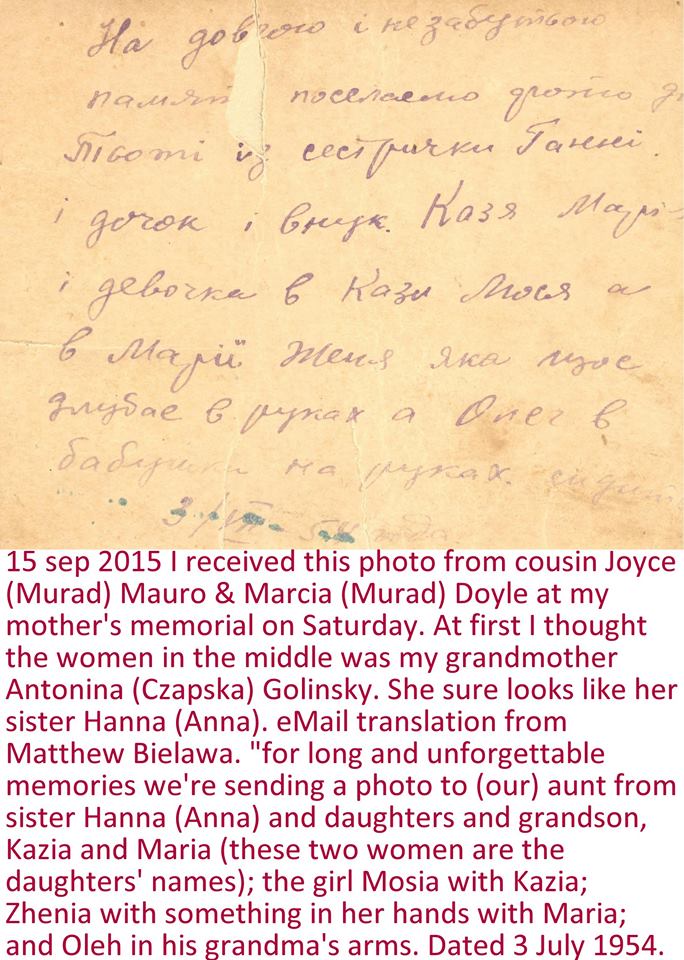 На довгою і незабутьою
памят посилаємо фото
Тьоті із сестрички Ганні.
і дочок і внук. Казя Марі-
і девочка в Кази Мося а
в Марії Женя яка щос
в руках а Олег в
бабушки на руках. сидит
3/VII - 54 года.
15 sep 2015 I received this photo from cousin Joyce
(Murad) Mauro & Marcia (Murad) Doyle at my
mother's memorial on Saturday. At first I thought
the women in the middle was my grandmother
Antonina (Czapska) Golinsky. She sure looks like her
sister Hanna (Anna). eMail translation from
Matthew Bielawa. "for long and unforgettable
memories we're sending a photo to (our) aunt from
sister Hanna (Anna) and daughters and grandson,
Kazia and Maria (these two women are the
daughters' names); the girl Mosia with Kazia;
Zhenia with something in her hands with Maria;
and Oleh in his grandma's arms. Dated 3 July 1954.